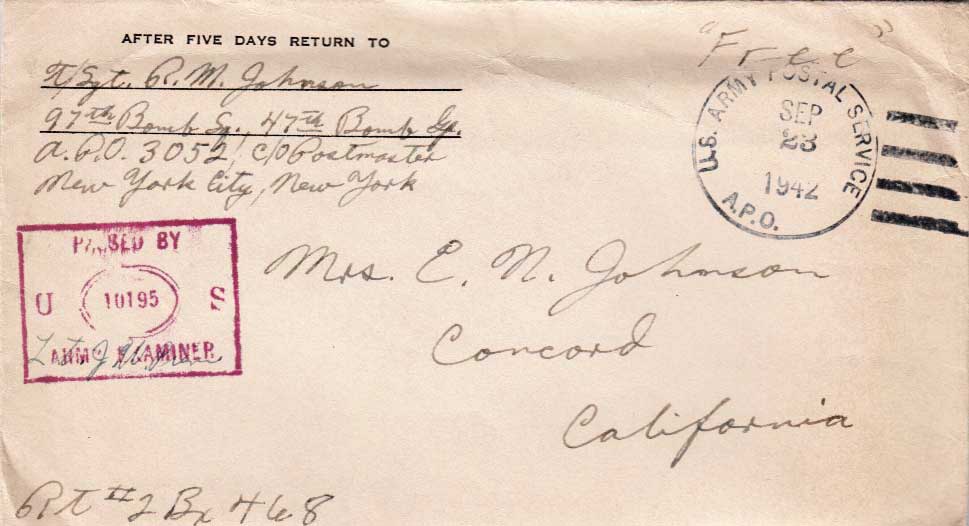 AFTER FIVE DAYS RETURN TO
"Free"
T/Sgt. R. M. Johnson
97th Bomb Sq., 47th Bomb Gp.
A.P.O. 3052, c/o Postmaster
New York City, New York
U.S. ARMY POSTAL SERVICE
SEP
23
1942
A.P.O.
PASSED BY
U 10195 S
ARMY EXAMINER
Mrs. E. N. Johnson
Concord
California
Rt #2 Bx 468